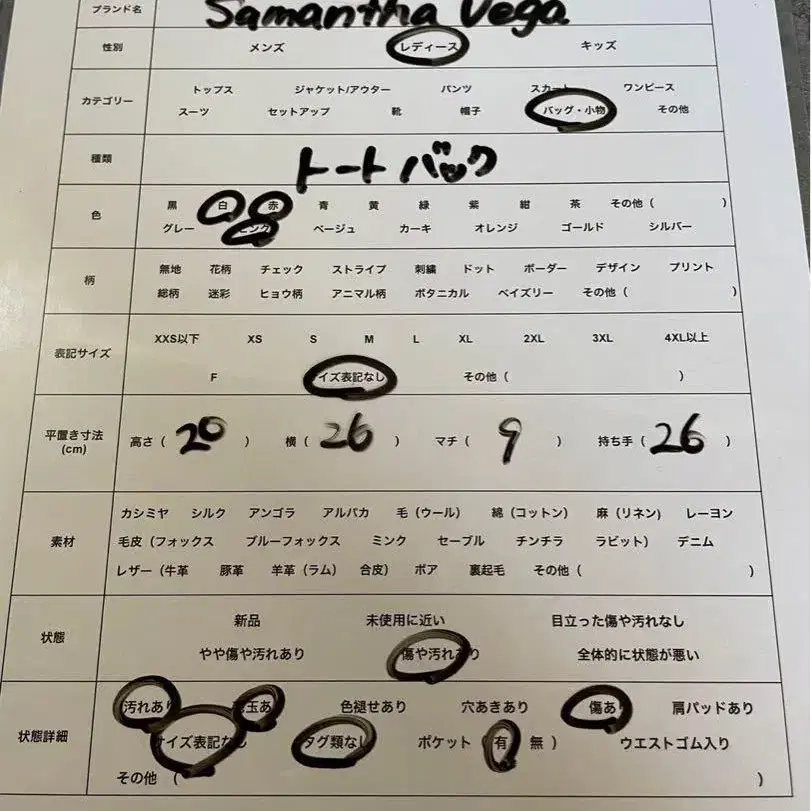 ブランド名 Samantha Vega
性別 メンズ レディース キッズ
カテゴリー トップス ジャケット/アウター パンツ スカート ワンピース
スーツ セットアップ 靴 帽子 バッグ・小物 その他
種類 トートバック
色 黒 白 赤 青 黄 緑 紫 紺 茶 その他（ ）
グレー ピンク ベージュ カーキ オレンジ ゴールド シルバー
柄 無地 花柄 チェック ストライプ 刺繍 ドット ボーダー デザイン プリント
総柄 迷彩 ヒョウ柄 アニマル柄 ボタニカル ペイズリー その他（ ）
表記サイズ XXS以下 XS S M L XL 2XL 3XL 4XL以上
F サイズ表記なし その他（ ）
平置き寸法 高さ（ 20 ） 横（ 26 ） マチ（ 9 ） 持ち手（ 26 ）
(cm)
カシミヤ シルク アンゴラ アルパカ 毛（ウール） 綿（コットン） 麻（リネン） レーヨン
素材 毛皮（フォックス ブルーフォックス ミンク セーブル チンチラ ラビット） デニム
レザー（牛革 豚革 羊革（ラム） 合皮） ボア 裏起毛 その他（ ）
状態 新品 未使用に近い 目立った傷や汚れなし
やや傷や汚れあり 傷や汚れあり 全体的に状態が悪い
状態詳細 汚れあり 毛玉あり 色褪せあり 穴あきあり 傷あり 肩パッドあり
サイズ表記なし タグ類なし ポケット（有 無 ） ウエストゴム入り
その他 （ ）